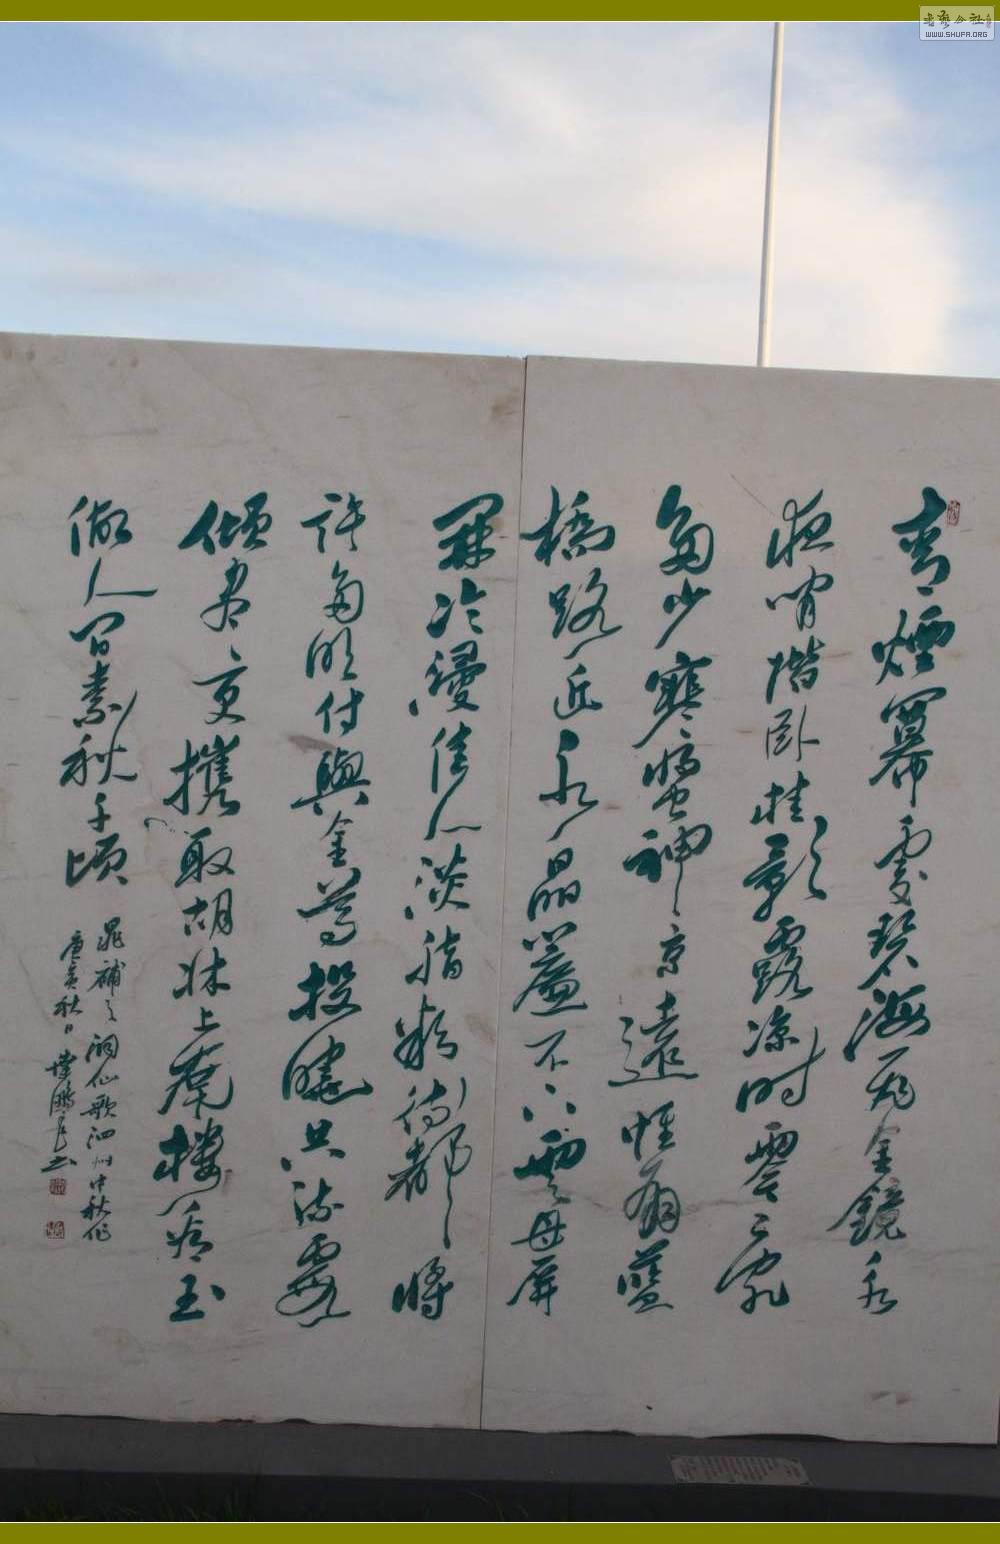 青煙冪處碧海飛金鏡永
夜閒階卧桂影露凉时零乱
多少寒螀神京遠惟有藍
橋路近水晶簾不下雲母屏
開冷浸佳人淡脂粉待都將
許多明付與金尊投曉共流霞
傾盡更攜取胡床上南樓看玉
做人间素秋千頃
晁補之洞仙歌泗州中秋作
庚寅秋日
书艺公社
WWW.SHUFA.ORG